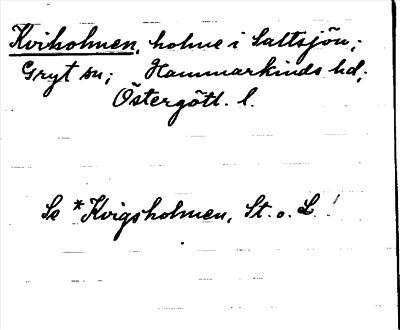 Kviholmen, holme i Saltsjön;
Gryt sn; Hammarkinds hd;
Östergötl. l.
Se *Kvigsholmen, St. o. L!